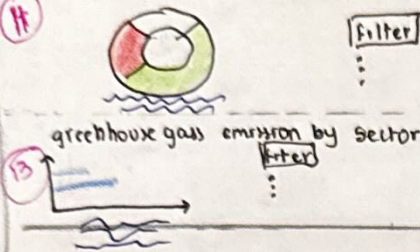 H
filter
greenhouse gass emission by sector
13
filter